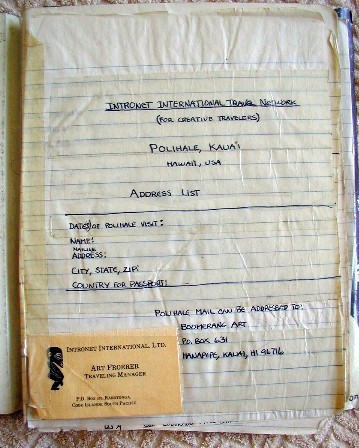 INTRONET INTERNATIONAL TRAVEL NETWORK
(FOR CREATIVE TRAVELERS)
POLIHALE, KAUA'I
HAWAII, USA
ADDRESS LIST
DATE(S) OF POLIHALE VISIT:
NAME:
MAILING
ADDRESS:
CITY, STATE, ZIP:
COUNTRY FOR PASSPORT:
POLIHALE MAIL CAN BE ADDRESSED TO:
BOOMERANG ART
P.O. BOX 631
HANAPEPE, KAUAI, HI 96716
INTRONET INTERNATIONAL, LTD.
ART FROEKER
TRAVELING MANAGER
COOK ISLANDS, SOUTH PACIFIC